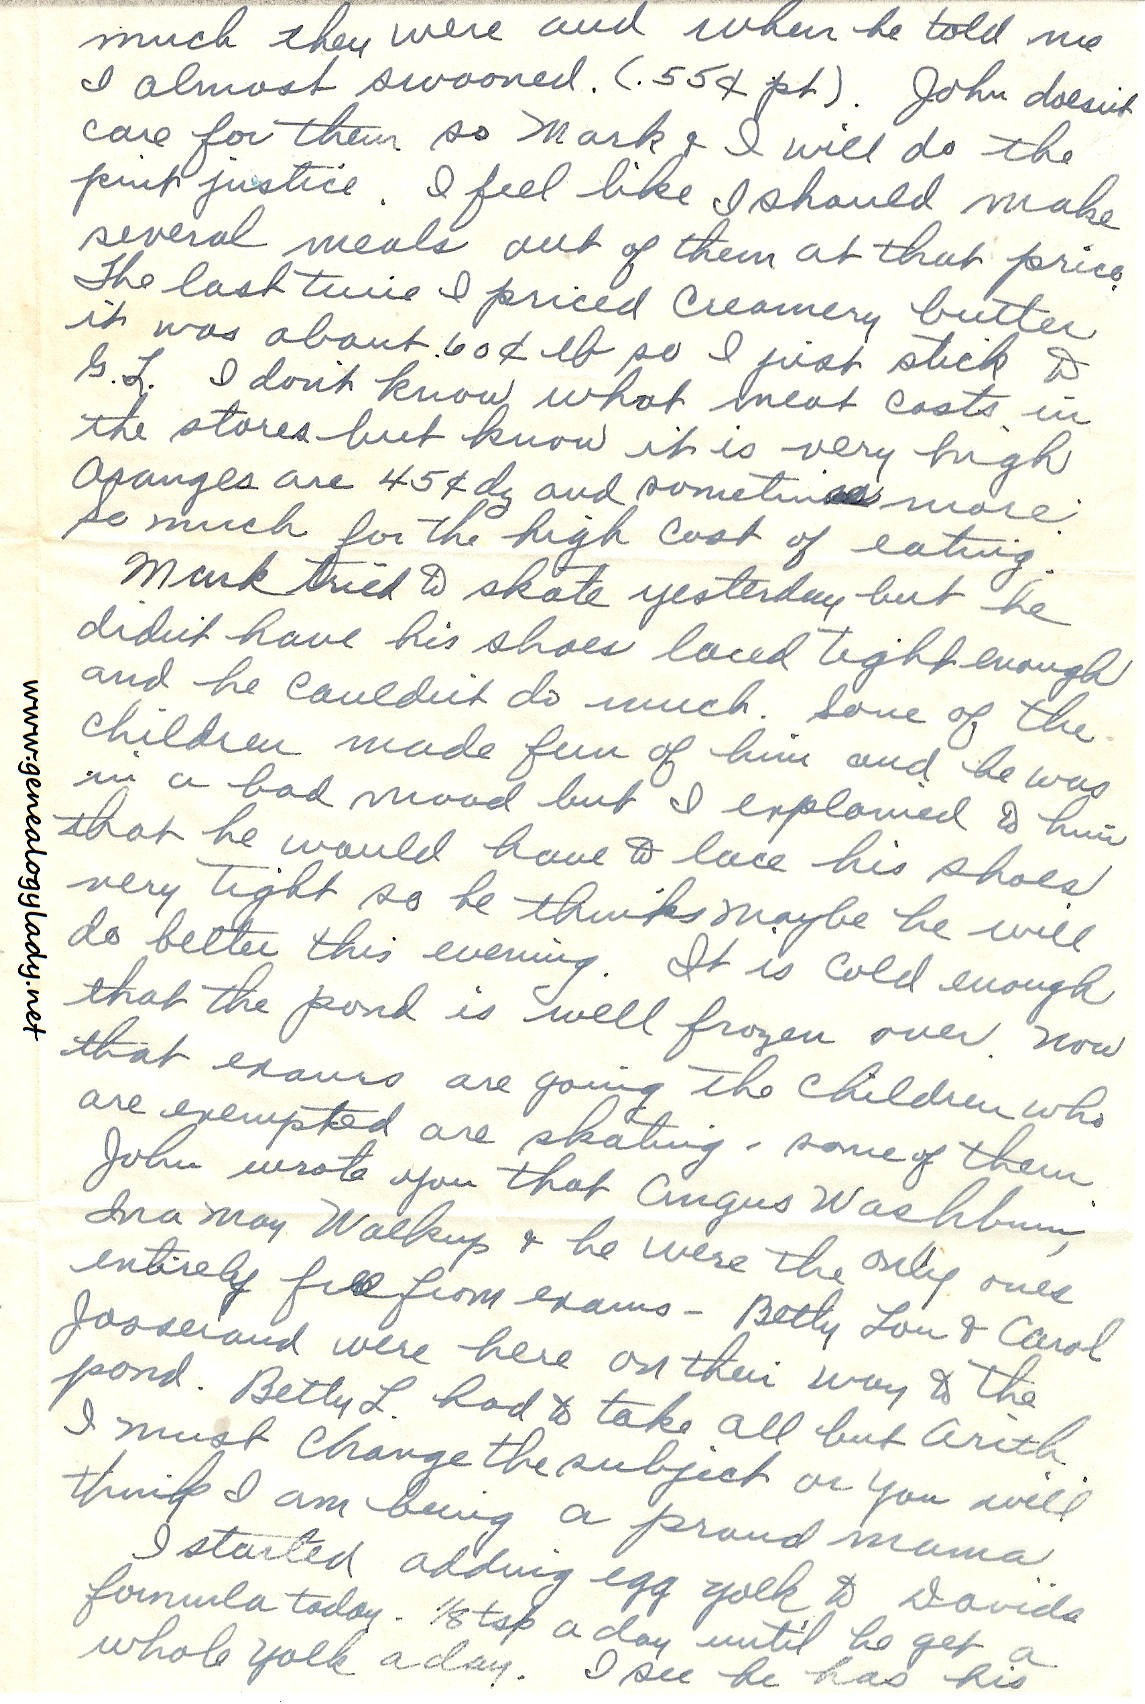 much they were and when he told me
I almost swooned. (.55¢ pt). John doesn't
care for them so Mark & I will do the
pint justice. I feel like I should make
several meals out of them at that price.
The last time I priced creamery butter
it was about .60¢ lb so I just stick to
G.L. I don't know what meat costs in
the stores but know it is very high
Oranges are 45¢ dz and sometimes more.
So much for the high cost of eating.
Mark tried to skate yesterday but he
didn't have his shoes laced tight enough
and he couldn't do much. Some of the
children made fun of him and he was
in a bad mood but I explained to him
that he would have to lace his shoes
very tight so he thinks maybe he will
do better this evening. It is cold enough
that the pond is well frozen over. Now
that exams are going the children who
are exempted are skating - some of them.
John wrote you that Angus Washburn,
Ina May Walkup & he were the only ones
entirely free from exams - Betty Lou & Carol
Josserand were here on their way to the
pond. Betty L. had to take all but Arith.
I must change the subject or you will
think I am being a proud mama
I started adding egg yolk to Davids
formula today - 1/8 tsp a day until he get a
whole yolk a day. I see he has his
www.genealogylady.net